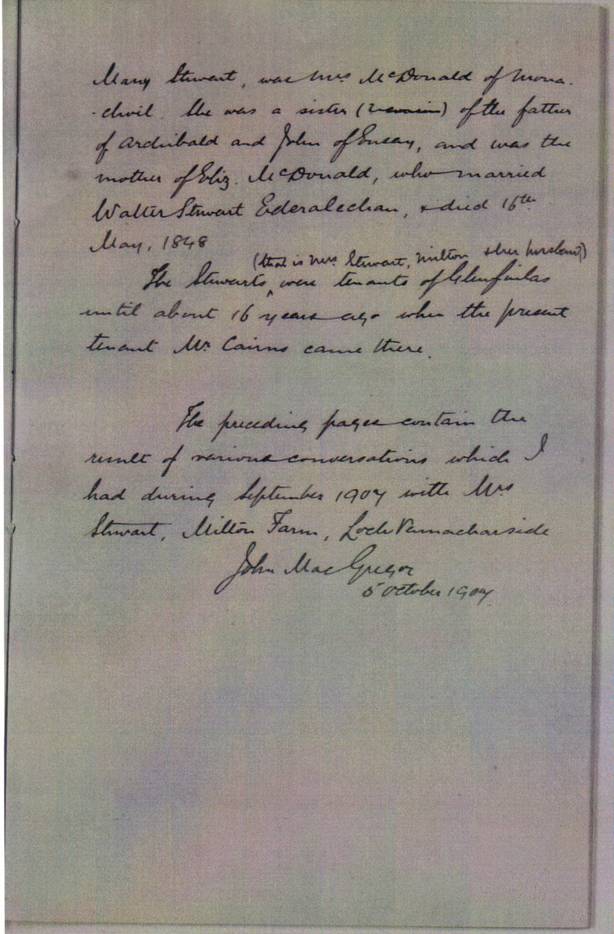 Mary Stewart, was Mrs McDonald of Mona-
-chuil. She was a sister ( ) of the father
of Archibald and John of Ensay, and was the
mother of Eliz. McDonald, who married
Walter Stewart Ederalechan, & died 16th
May, 1848
(that is Mrs. Stewart, Milton & her husband)
The Stewarts, were tenants of Glenfinlas
until about 16 years ago when the present
tenant Mr. Cairns came there.
The preceding pages contain the
result of various conversations which I
had during September 1907 with Mrs
Stewart, Milton Farm, Loch Vennacharside
John MacGregor
5 October 1907.